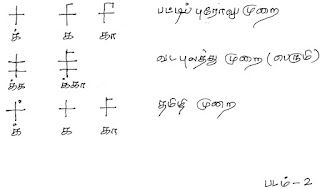 பட்டிப்புரோலு முறை
க் க கா
வடபுலத்து முறை (பெருமி)
க்க க்கா
தமிழி முறை
க் க கா
படம் - 2